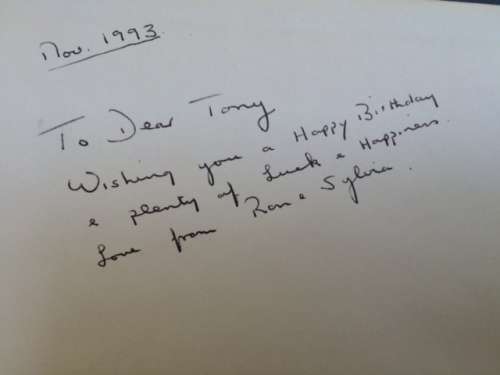 Nov. 1993.
To Dear Tony
Wishing you a Happy Birthday
& plenty of Luck & Happiness.
Love from Ron & Sylvia.